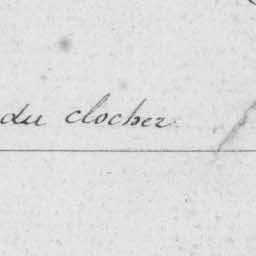 du clocher